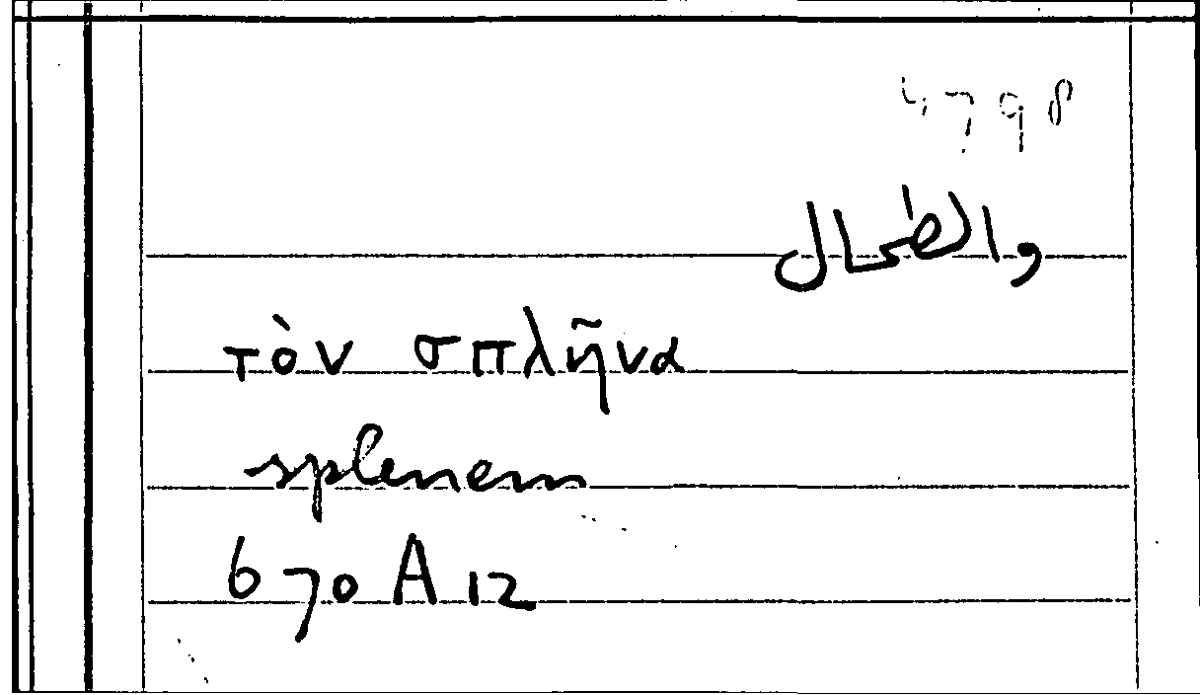 4798
والطحال
τὸν σπλῆνα
splenem
670 A 12